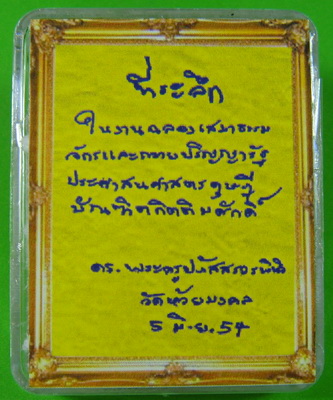 ที่ระลึก
ในงานฉลองเสมาธรรม
จักรและถวายปริญญารัฐ
ประศาสนศาสตรดุษฎี
บัณฑิตกิตติมศักดิ์
ดร. พระครูปทัสสรรพินิ
วัดห้วยมงคล
5 มิ.ย. 54